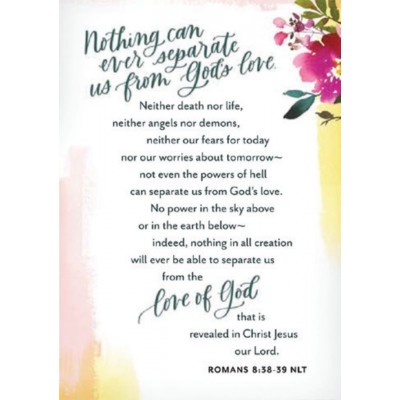 Nothing can
ever separate
us from God's love.
Neither death nor life,
neither angels nor demons,
neither our fears for today
nor our worries about tomorrow—
not even the powers of hell
can separate us from God's love.
No power in the sky above
or in the earth below—
indeed, nothing in all creation
will ever be able to separate us
from the
love of God
that is
revealed in Christ Jesus
our Lord.
ROMANS 8:38-39 NLT